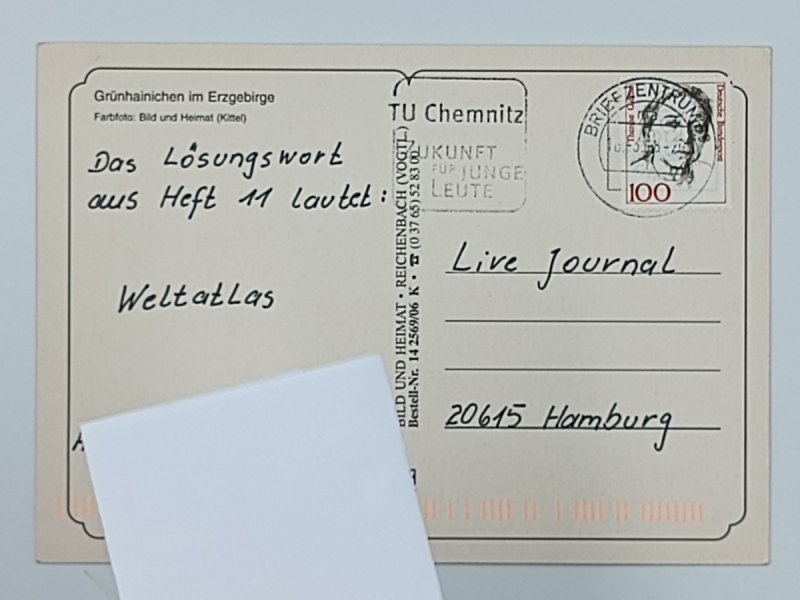 Grünhainichen im Erzgebirge
Farbfoto: Bild und Heimat (Kittel)
Das Lösungswort
aus Heft 11 lautet:
Weltatlas
BILD UND HEIMAT • REICHENBACH (VOGTL.)
Bestell-Nr. 14 2569/06 K • ☎ (0 37 65) 52 83 00
TU Chemnitz
ZUKUNFT
FÜR JUNGE
LEUTE
BRIEFZENTRUM
Deutsche Bundespost
100
Live Journal
20615 Hamburg